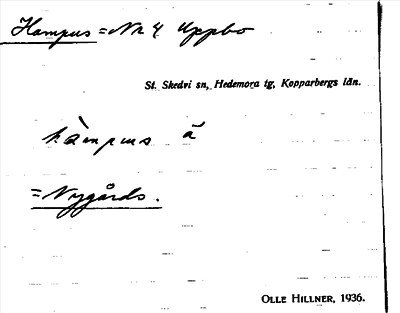 Hampus = Nr 4 Uppbo
St. Skedvi sn, Hedemora tg, Kopparbergs län.
hàmpus ã
= Nygårds.
OLLE HILLNER, 1936.